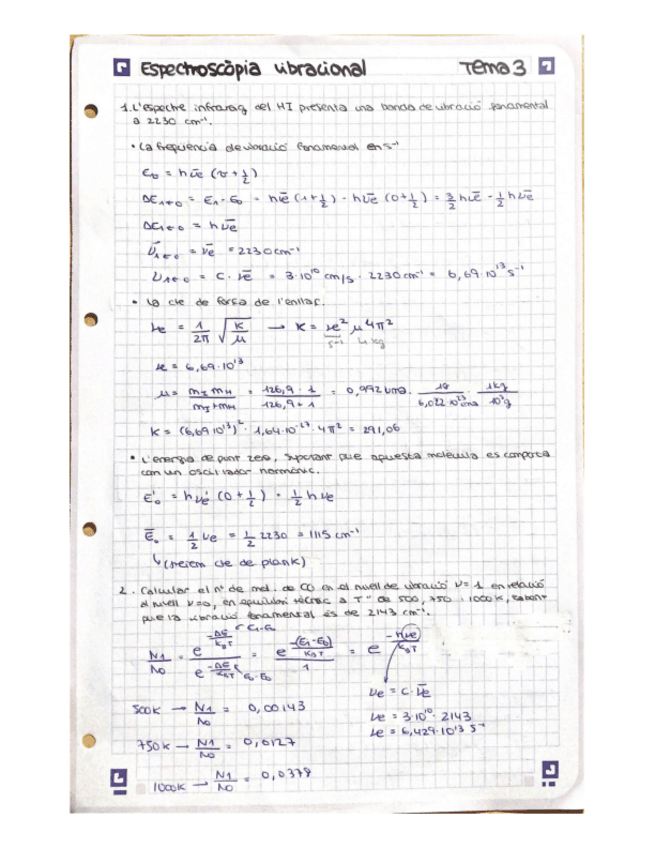 Espectroscòpia vibracional Tema 3
1. L'espectre infraroig del HI presenta una banda de vibració fonamental
a 2230 cm⁻¹.
• La freqüència de vibració fonamental en s⁻¹
Ev = hν̄e (v + 1/2)
ΔE1←0 = E1 - E0 = hν̄e (1 + 1/2) - hν̄e (0 + 1/2) = 3/2 hν̄e - 1/2 hν̄e
ΔE1←0 = hν̄e
ν̄1←0 = ν̄e = 2230 cm⁻¹
ν1←0 = c · ν̄e = 3·10¹⁰ cm/s · 2230 cm⁻¹ = 6,69·10¹³ s⁻¹
• La cte de força de l'enllaç.
νe = 1/2π √(K/μ) → K = νe² μ 4π²
s⁻¹ kg
νe = 6,69·10¹³
μ = mI mH / mI + mH = 126,9 · 1 / 126,9 + 1 = 0,992 uma · 1g / 6,022·10²³ uma · 1kg / 10³g
K = (6,69·10¹³)² · 1,64·10⁻²⁷ · 4π² = 291,06
• L'energia de punt zero, suposant que aquesta molècula es comporta
com un oscil·lador harmònic.
E'0 = hνe (0 + 1/2) = 1/2 hνe
Ē0 = 1/2 νe = 1/2 2230 = 1115 cm⁻¹
↳ (treiem cte de plank)
2. Calcular el nº de mol. de CO en el nivell de vibració V=1 en relació
al nivell V=0, en equilibri tèrmic a Tª de 500, 750 i 1000K,
que la vibració fonamental és de 2143 cm⁻¹.
N1/N0 = e^(-ΔE/KBT) / e^(-ΔE/KBT) = e^(-(E1-E0)/KBT) / 1 = e^(-hνe/KBT)
E1-E0
E0-E0
νe = c · ν̄e
500K → N1/N0 = 0,00143
νe = 3·10¹⁰ · 2143
νe = 6,429·10¹³ s⁻¹
750K → N1/N0 = 0,0127
1000K → N1/N0 = 0,0378